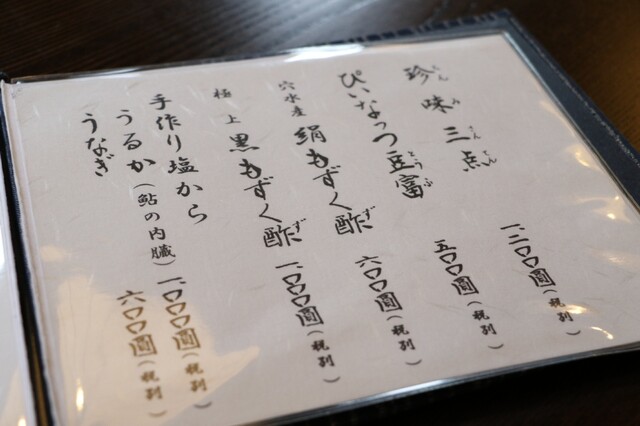 珍味三点 一、二〇〇圓(税別)
ぴいなっつ豆富 五〇〇圓(税別)
穴水産 絹もずく酢 六〇〇圓(税別)
極上 黒もずく酢 一、〇〇〇圓(税別)
手作り塩から
うるか(鮎の内臓) 一、〇〇〇圓(税別)
うなぎ 六〇〇圓(税別)